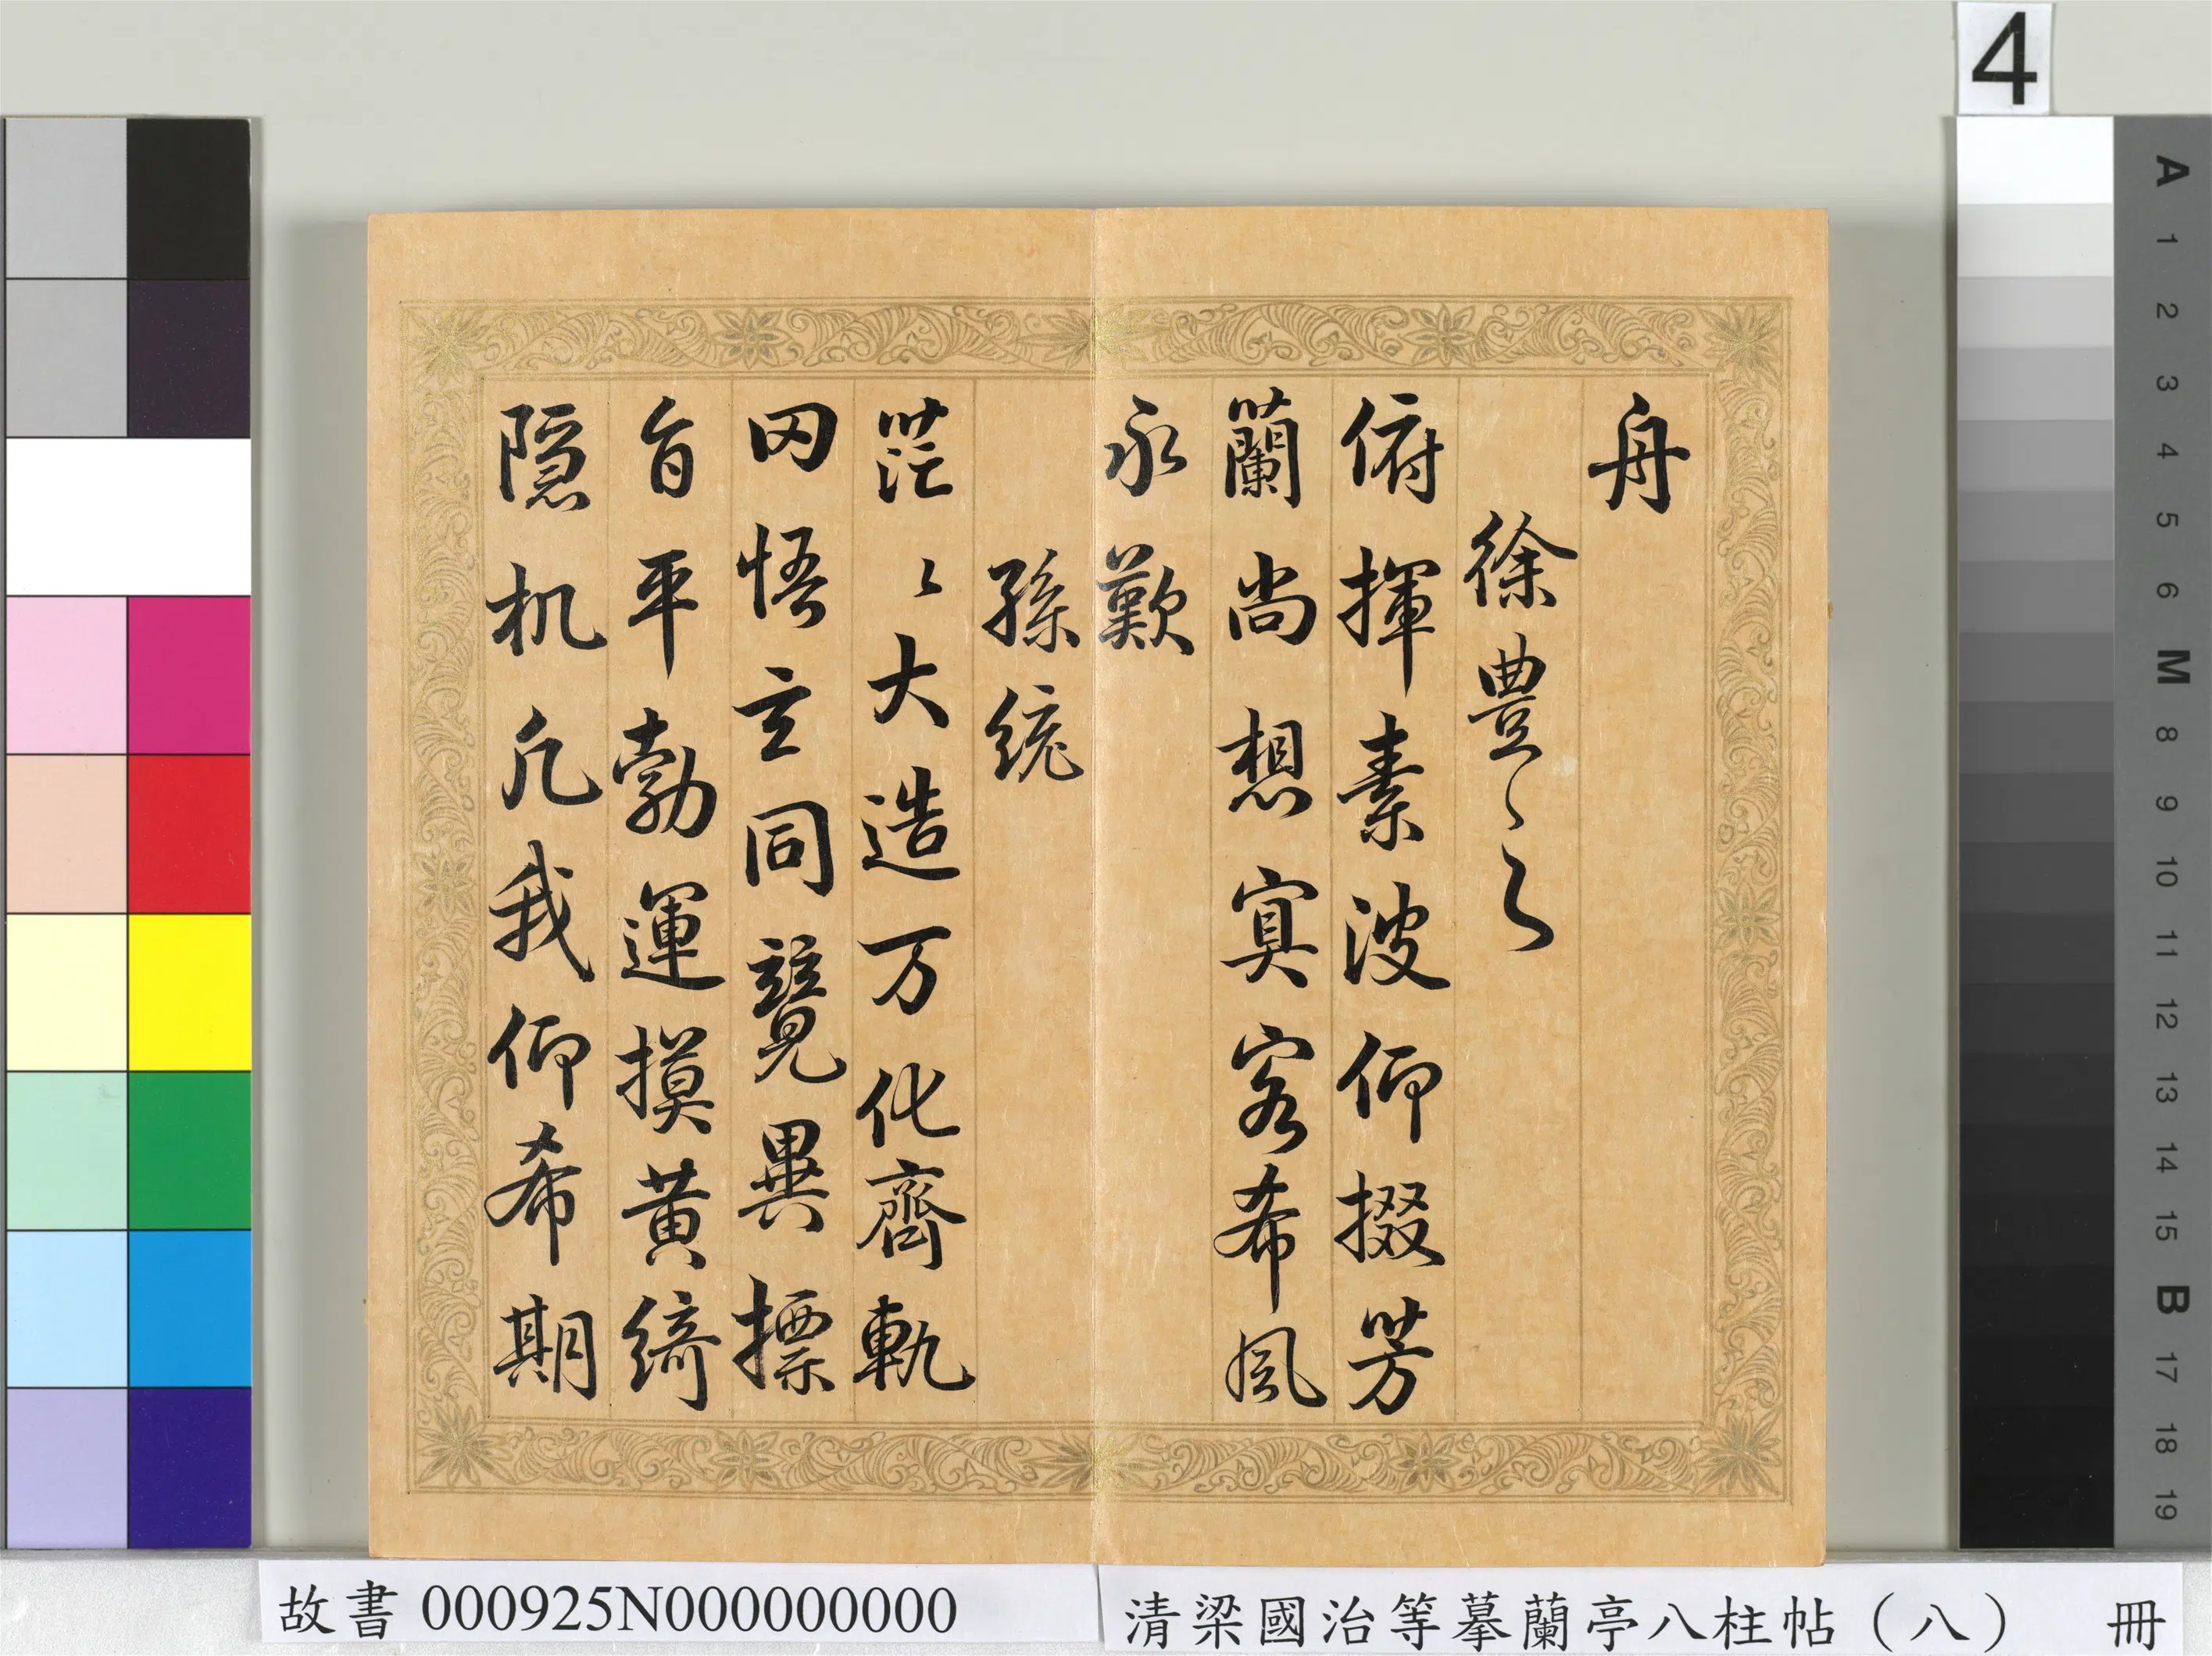 舟
徐豊〻之
俯揮素波仰掇芳
蘭尚想冥客希風
永歎
孫統
茫〻大造万化齊軌
罔悟玄同競異摽
旨平勃運摸黄綺
隠机凡我仰希期
4
A 1 2 3 4 5 6 M 8 9 10 11 12 13 14 15 B 17 18 19
故書 000925N000000000
清梁國治等摹蘭亭八柱帖（八） 冊